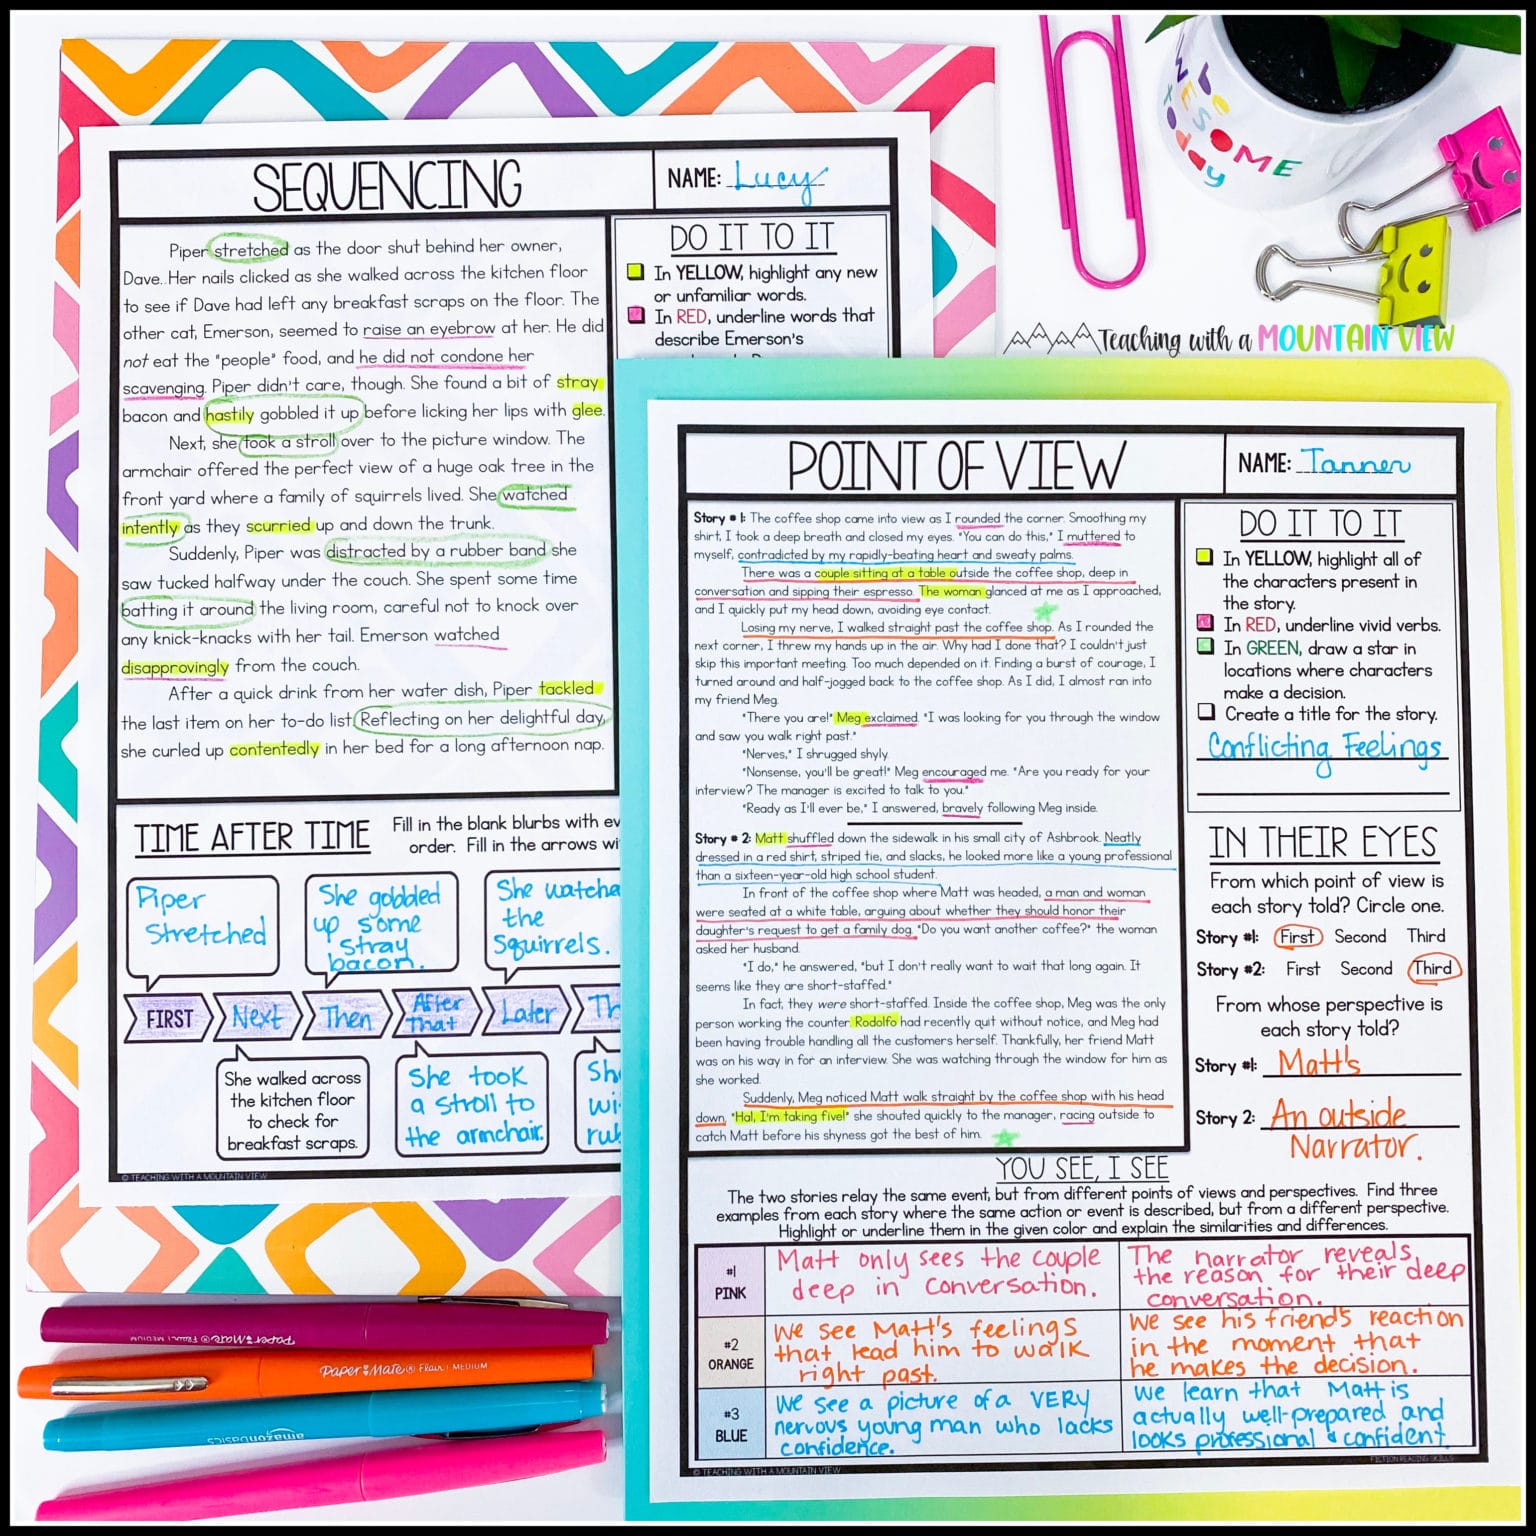 SEQUENCING
NAME: Lucy
Piper stretched as the door shut behind her owner,
Dave. Her nails clicked as she walked across the kitchen floor
to see if Dave had left any breakfast scraps on the floor. The
other cat, Emerson, seemed to raise an eyebrow at her. He did
not eat the "people" food, and he did not condone her
scavenging. Piper didn't care, though. She found a bit of stray
bacon and hastily gobbled it up before licking her lips with glee.
Next, she took a stroll over to the picture window. The
armchair offered the perfect view of a huge oak tree in the
front yard where a family of squirrels lived. She watched
intently as they scurried up and down the trunk.
Suddenly, Piper was distracted by a rubber band she
saw tucked halfway under the couch. She spent some time
batting it around the living room, careful not to knock over
any knick-knacks with her tail. Emerson watched
disapprovingly from the couch.
After a quick drink from her water dish, Piper tackled
the last item on her to-do list. Reflecting on her delightful day,
she curled up contentedly in her bed for a long afternoon nap.
DO IT TO IT
In YELLOW, highlight any new
or unfamiliar words.
In RED, underline words that
describe Emerson's
TIME AFTER TIME
Fill in the blank blurbs with
order. Fill in the arrows
Piper
Stretched
She gobbled
up some
stray
bacon.
She
the
squirrels.
FIRST
Next
Then
After
that
Later
She walked across
the kitchen floor
to check for
breakfast scraps.
She took
a stroll to
the armchair.
© TEACHING WITH A MOUNTAIN VIEW
be
AWESOME
today
Teaching with a MOUNTAIN VIEW
POINT OF VIEW
NAME: Tanner
Story # 1: The coffee shop came into view as I rounded the corner. Smoothing my
shirt, I took a deep breath and closed my eyes. "You can do this," I muttered to
myself, contradicted by my rapidly-beating heart and sweaty palms.
There was a couple sitting at a table outside the coffee shop, deep in
conversation and sipping their espresso. The woman glanced at me as I approached,
and I quickly put my head down, avoiding eye contact.
Losing my nerve, I walked straight past the coffee shop. As I rounded the
next corner, I threw my hands up in the air. Why had I done that? I couldn't just
skip this important meeting. Too much depended on it. Finding a burst of courage, I
turned around and half-jogged back to the coffee shop. As I did, I almost ran into
my friend Meg.
"There you are!" Meg exclaimed. "I was looking for you through the window
and saw you walk right past."
"Nerves," I shrugged shyly.
"Nonsense, you'll be great!" Meg encouraged me. "Are you ready for your
interview? The manager is excited to talk to you."
"Ready as I'll ever be," I answered, bravely following Meg inside.
Story # 2: Matt shuffled down the sidewalk in his small city of Ashbrook. Neatly
dressed in a red shirt, striped tie, and slacks, he looked more like a young professional
than a sixteen-year-old high school student.
In front of the coffee shop where Matt was headed, a man and woman
were seated at a white table, arguing about whether they should honor their
daughter's request to get a family dog. "Do you want another coffee?" the woman
asked her husband.
"I do," he answered, "but I don't really want to wait that long again. It
seems like they are short-staffed."
In fact, they were short-staffed. Inside the coffee shop, Meg was the only
person working the counter. Rodolfo had recently quit without notice, and Meg had
been having trouble handling all the customers herself. Thankfully, her friend Matt
was on his way in for an interview. She was watching through the window for him as
she worked.
Suddenly, Meg noticed Matt walk straight by the coffee shop with his head
down. "Hal, I'm taking five!" she shouted quickly to the manager, racing outside to
catch Matt before his shyness got the best of him.
DO IT TO IT
In YELLOW, highlight all of
the characters present in
the story.
In RED, underline vivid verbs.
In GREEN, draw a star in
locations where characters
make a decision.
Create a title for the story.
Conflicting Feelings
IN THEIR EYES
From which point of view is
each story told? Circle one.
Story #1: First Second Third
Story #2: First Second Third
From whose perspective is
each story told?
Story #1: Matt's
Story 2: An outside
Narrator.
YOU SEE, I SEE
The two stories relay the same event, but from different points of views and perspectives. Find three
examples from each story where the same action or event is described, but from a different perspective.
Highlight or underline them in the given color and explain the similarities and differences.
#1
PINK
Matt only sees the couple
deep in conversation.
The narrator reveals
the reason for their deep
conversation.
#2
ORANGE
We see Matt's feelings
that lead him to walk
right past.
We see his friend's reaction
in the moment that
he makes the decision.
#3
BLUE
We see a picture of a VERY
nervous young man who lacks
confidence.
We learn that Matt is
actually well-prepared and
looks professional & confident.
© TEACHING WITH A MOUNTAIN VIEW
FICTION READING SKILLS
Paper Mate® Flair | MEDIUM
Paper Mate® Flair | MEDIUM
amazonbasics